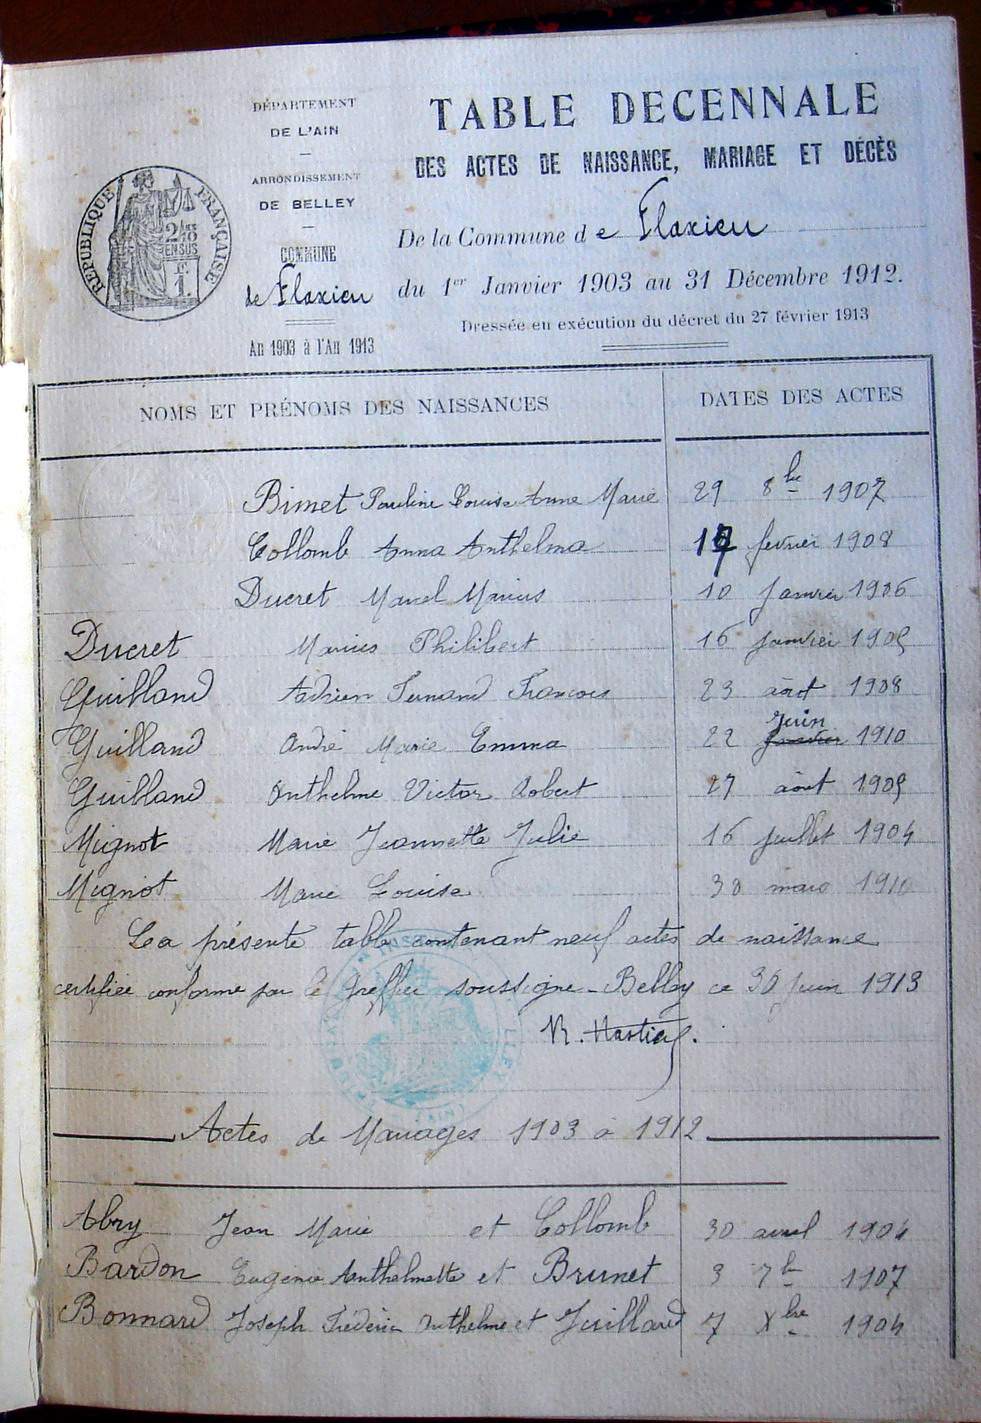 DÉPARTEMENT
DE L'AIN
ARRONDISSEMENT
DE BELLEY
COMMUNE
de Flaxieu
An 1903 à l'An 1913
RÉPUBLIQUE FRANÇAISE
2/10
EN SUS
1 F.
TABLE DECENNALE
DES ACTES DE NAISSANCE, MARIAGE ET DÉCÈS
De la Commune de Flaxieu
du 1er Janvier 1903 au 31 Décembre 1912.
Dressée en exécution du décret du 27 février 1913
NOMS ET PRÉNOMS DES NAISSANCES DATES DES ACTES
Bimet Pauline Louise Anne Marie 29 8bre 1907
Collomb Anna Anthelma 17 février 1908
Ducret Marcel Marius 10 Janvier 1906
Ducret Marius Philibert 16 janvier 1905
Guilland Adrien Fernand François 23 août 1908
Guilland André Marie Emma 22 Juin 1910
Guilland Anthelme Victor Robert 27 août 1905
Mignot Marie Jeannette Julie 16 juillet 1904
Mignot Marie Louise 30 mars 1910
La présente table contenant neuf actes de naissance
certifiée conforme par le greffier soussigné - Belley ce 30 Juin 1913
Actes de Mariages 1903 à 1912
Abry Jean Marie et Collomb 30 avril 1904
Bardon Eugénie Anthelmette et Brunet 3 7bre 1907
Bonnard Joseph Frédéric Anthelme et Juilland 7 Xbre 1904